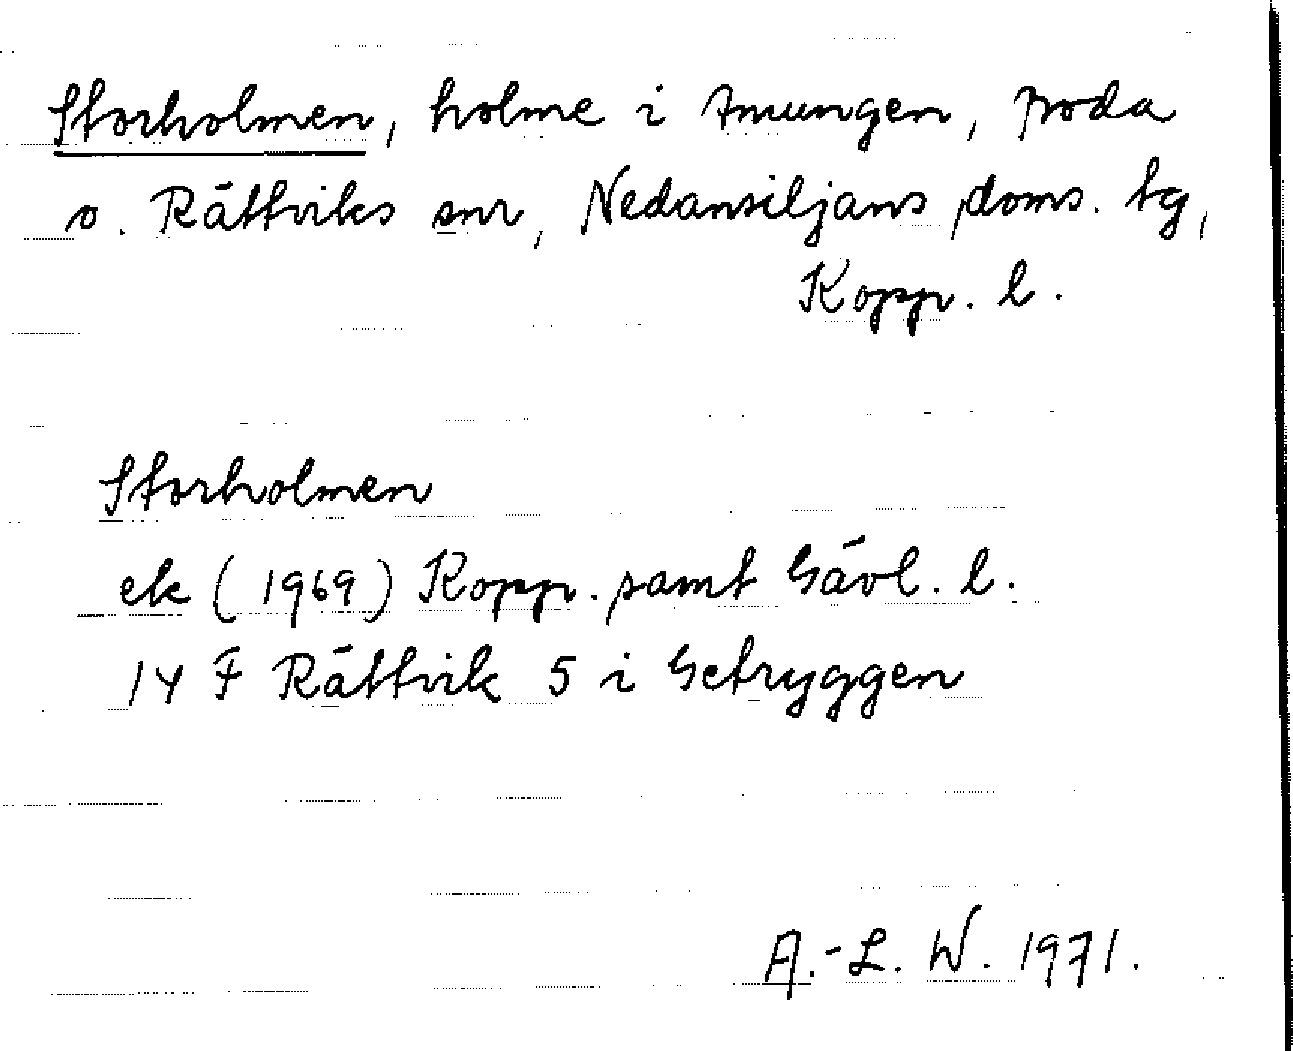 Storholmen, holme i Amungen, Boda
o. Rättviks snr, Nedansiljans doms. tg,
Kopp. l.
Storholmen
ek (1969) Kopp. samt Gävl. l.
14 F Rättvik 5 i Getryggen
A.-L. W. 1971.